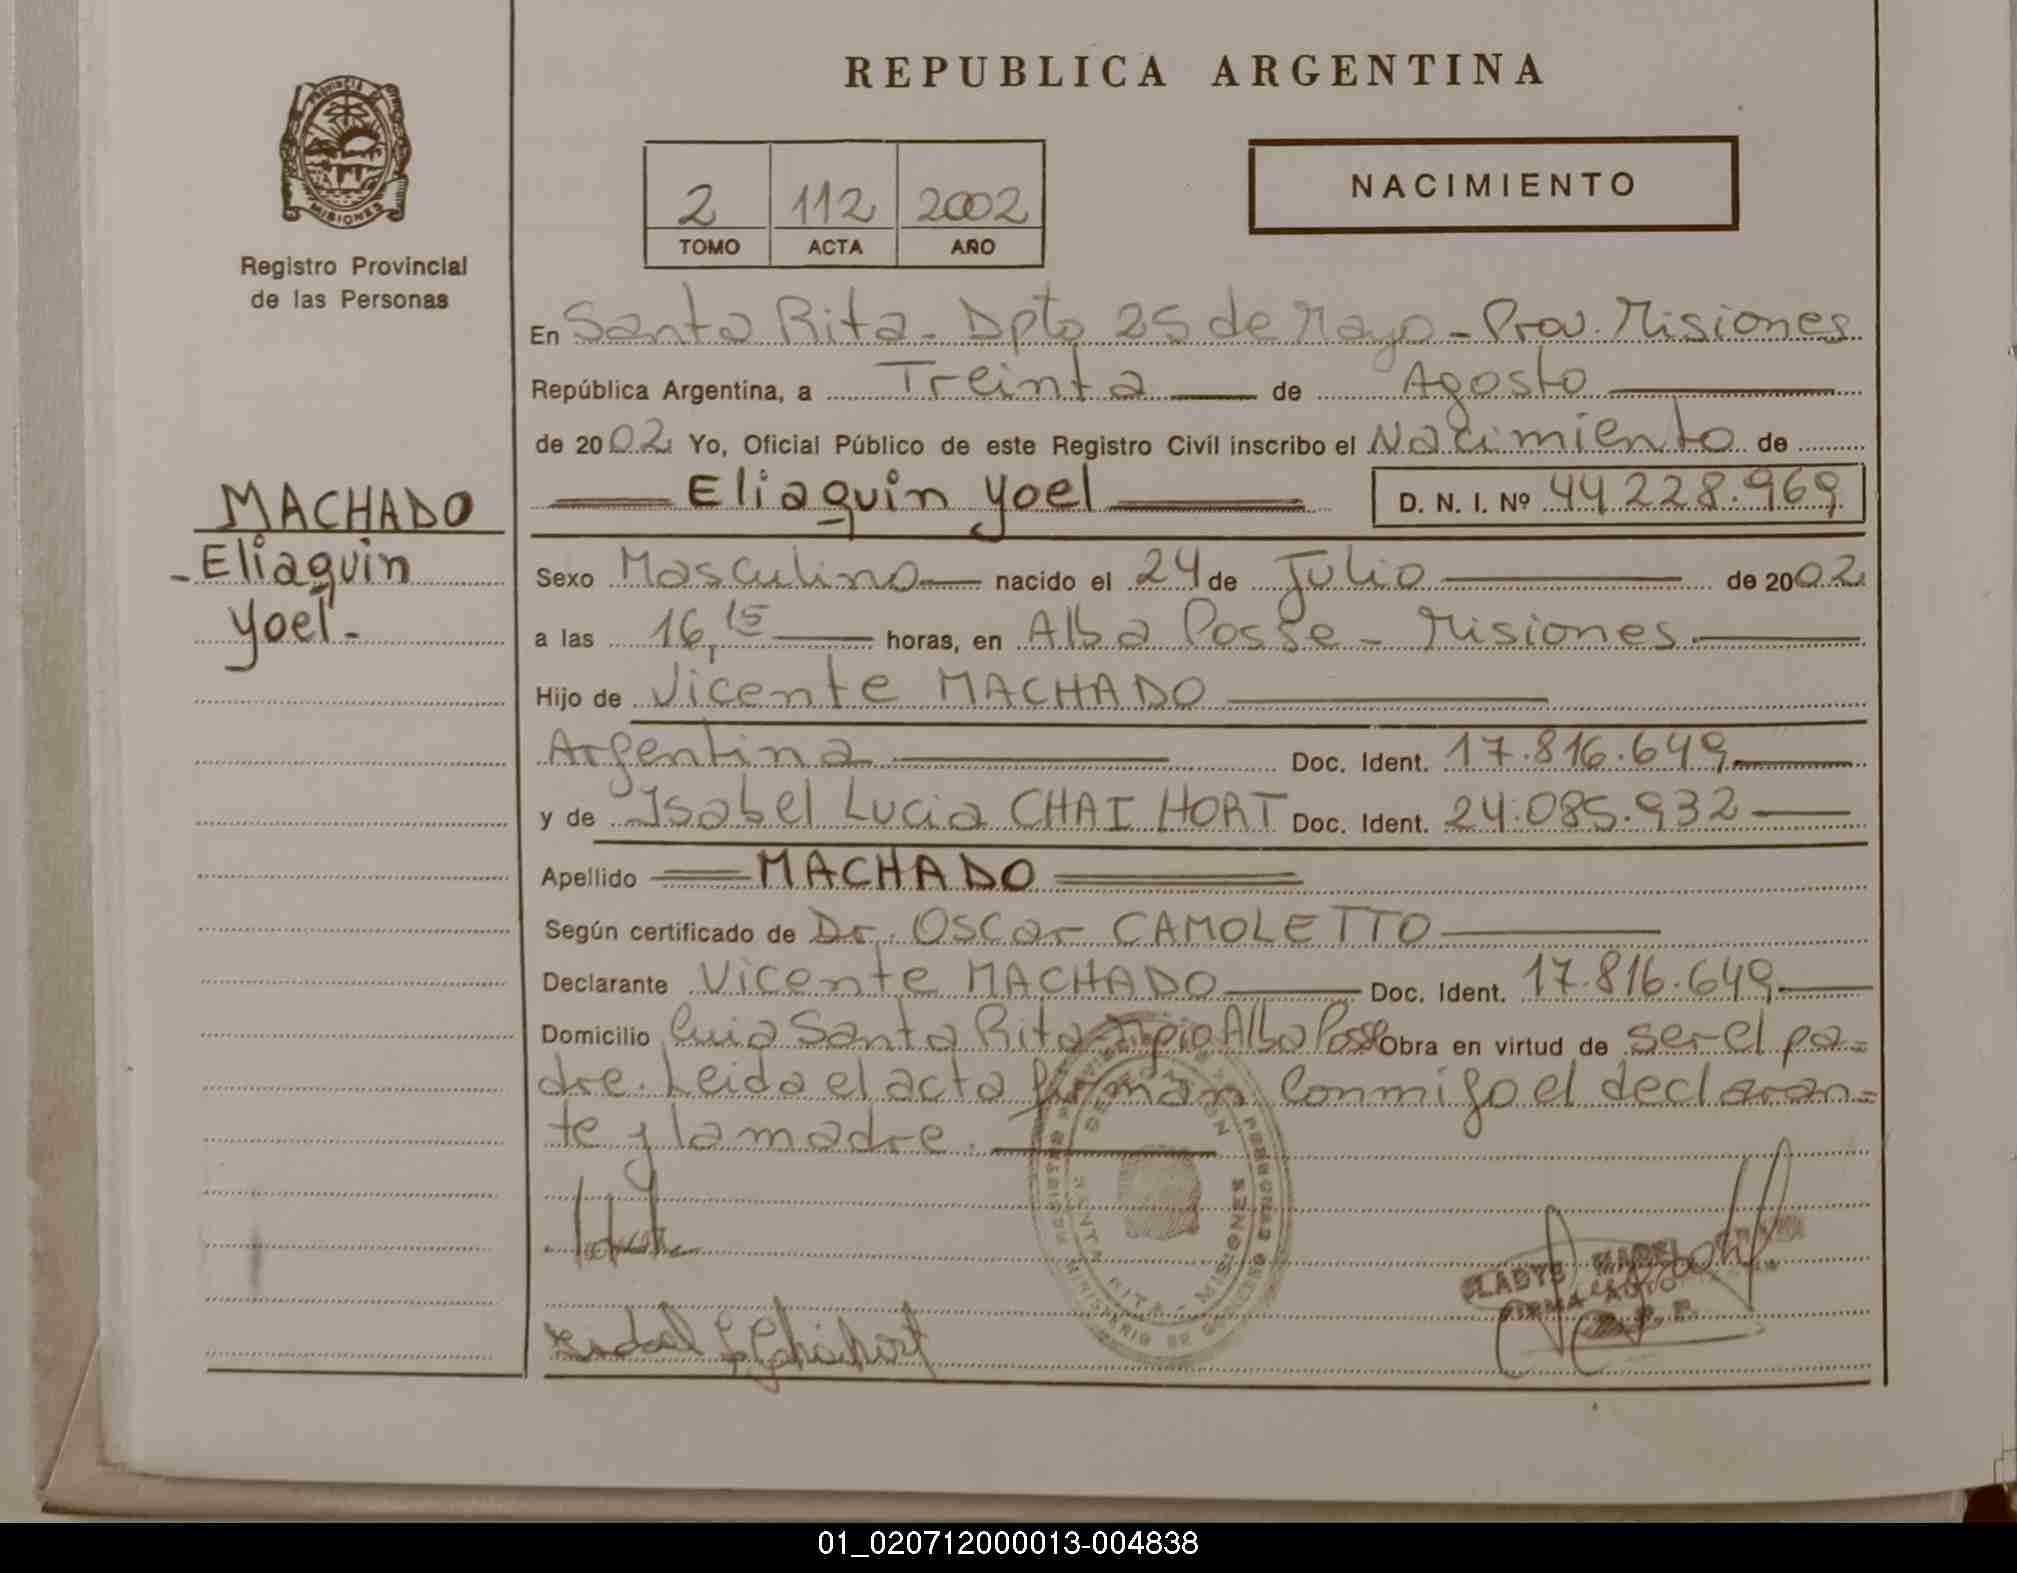 REPUBLICA ARGENTINA
PROVINCIA DE
MISIONES
Registro Provincial
de las Personas
2 112 2002
TOMO ACTA AÑO
NACIMIENTO
En Santa Rita - Dpto 25 de Mayo - Prov. Misiones
República Argentina, a Treinta de Agosto
de 2002 Yo, Oficial Público de este Registro Civil inscribo el Nacimiento de
Eliaquin Yoel D. N. I. Nº 44.228.969
MACHADO
- Eliaquin
Yoel -
Sexo Masculino nacido el 24 de Julio de 2002
a las 16,15 horas, en Alba Posse - Misiones
Hijo de Vicente MACHADO
Argentina Doc. Ident. 17.816.649
y de Isabel Lucia CHAI HORT Doc. Ident. 24.085.932
Apellido MACHADO
Según certificado de Dr. Oscar CAMOLETTO
Declarante Vicente MACHADO Doc. Ident. 17.816.649
Domicilio Santa Rita Alba Posse Obra en virtud de ser el pa=
dre. Leida el acta firman conmigo el declaran=
te y la madre.
SANTA RITA - MISIONES
MINISTERIO DE GOBIERNO
GLADYS MABEL
FIRMA
01_020712000013-004838